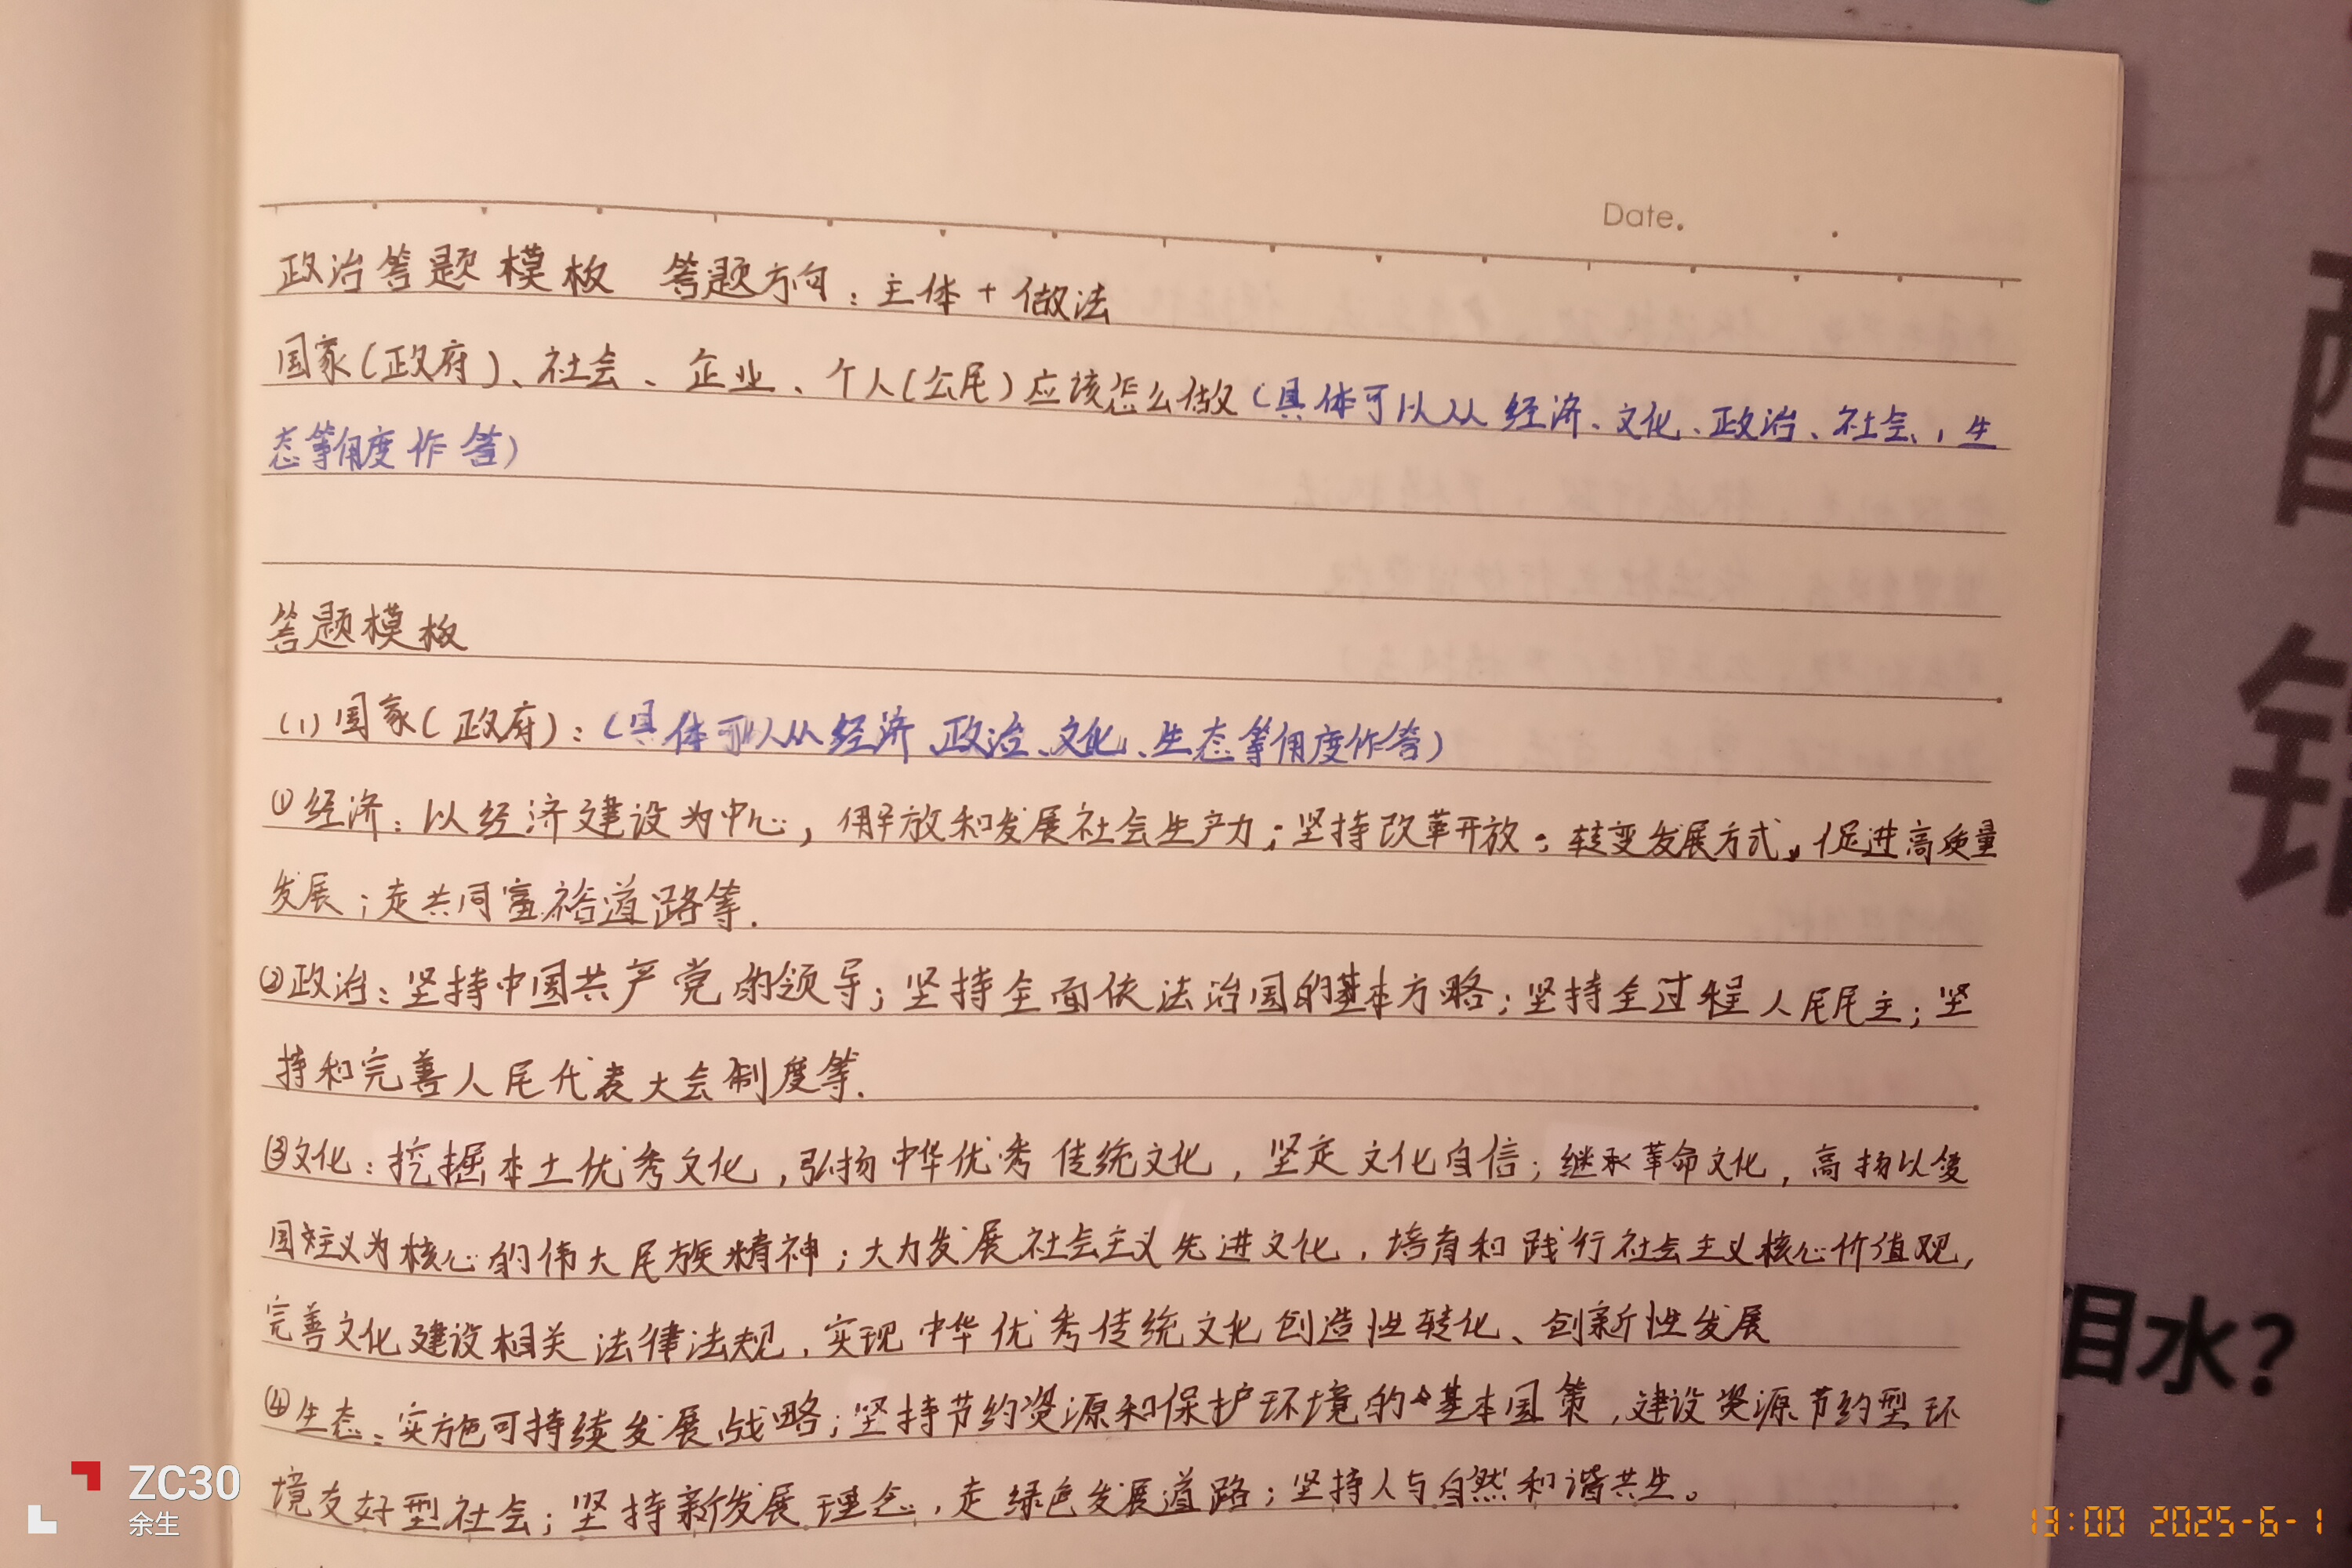 Date.
政治答题模板 答题方向：主体+做法
国家(政府)、社会、企业、个人(公民)应该怎么做(具体可以从经济、文化、政治、社会、生
态等角度作答)
答题模板
(1)国家(政府)：(具体可以从经济、政治、文化、生态等角度作答)
①经济：以经济建设为中心，解放和发展社会生产力；坚持改革开放；转变发展方式，促进高质量
发展；走共同富裕道路等.
②政治：坚持中国共产党的领导；坚持全面依法治国的基本方略；坚持全过程人民民主；坚
持和完善人民代表大会制度等.
③文化：挖掘本土优秀文化，弘扬中华优秀传统文化，坚定文化自信；继承革命文化，高扬以爱
国主义为核心的伟大民族精神；大力发展社会主义先进文化，培育和践行社会主义核心价值观，
完善文化建设相关法律法规，实现中华优秀传统文化创造性转化、创新性发展
④生态：实施可持续发展战略；坚持节约资源和保护环境的基本国策，建设资源节约型环
境友好型社会；坚持新发展理念，走绿色发展道路；坚持人与自然和谐共生。
西
错
泪水？
ZC30
余生
13:00 2025-6-1